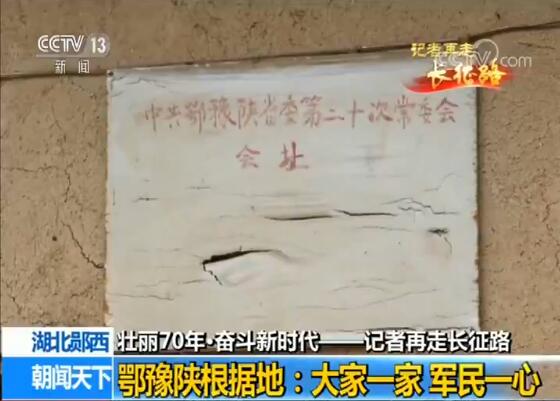 CCTV 13
新闻
CCTV.com
记者再走
长征路
中共鄂豫陕省委第二十次常委会
会址
湖北郧西
壮丽70年·奋斗新时代——记者再走长征路
朝闻天下
鄂豫陕根据地：大家一家 军民一心